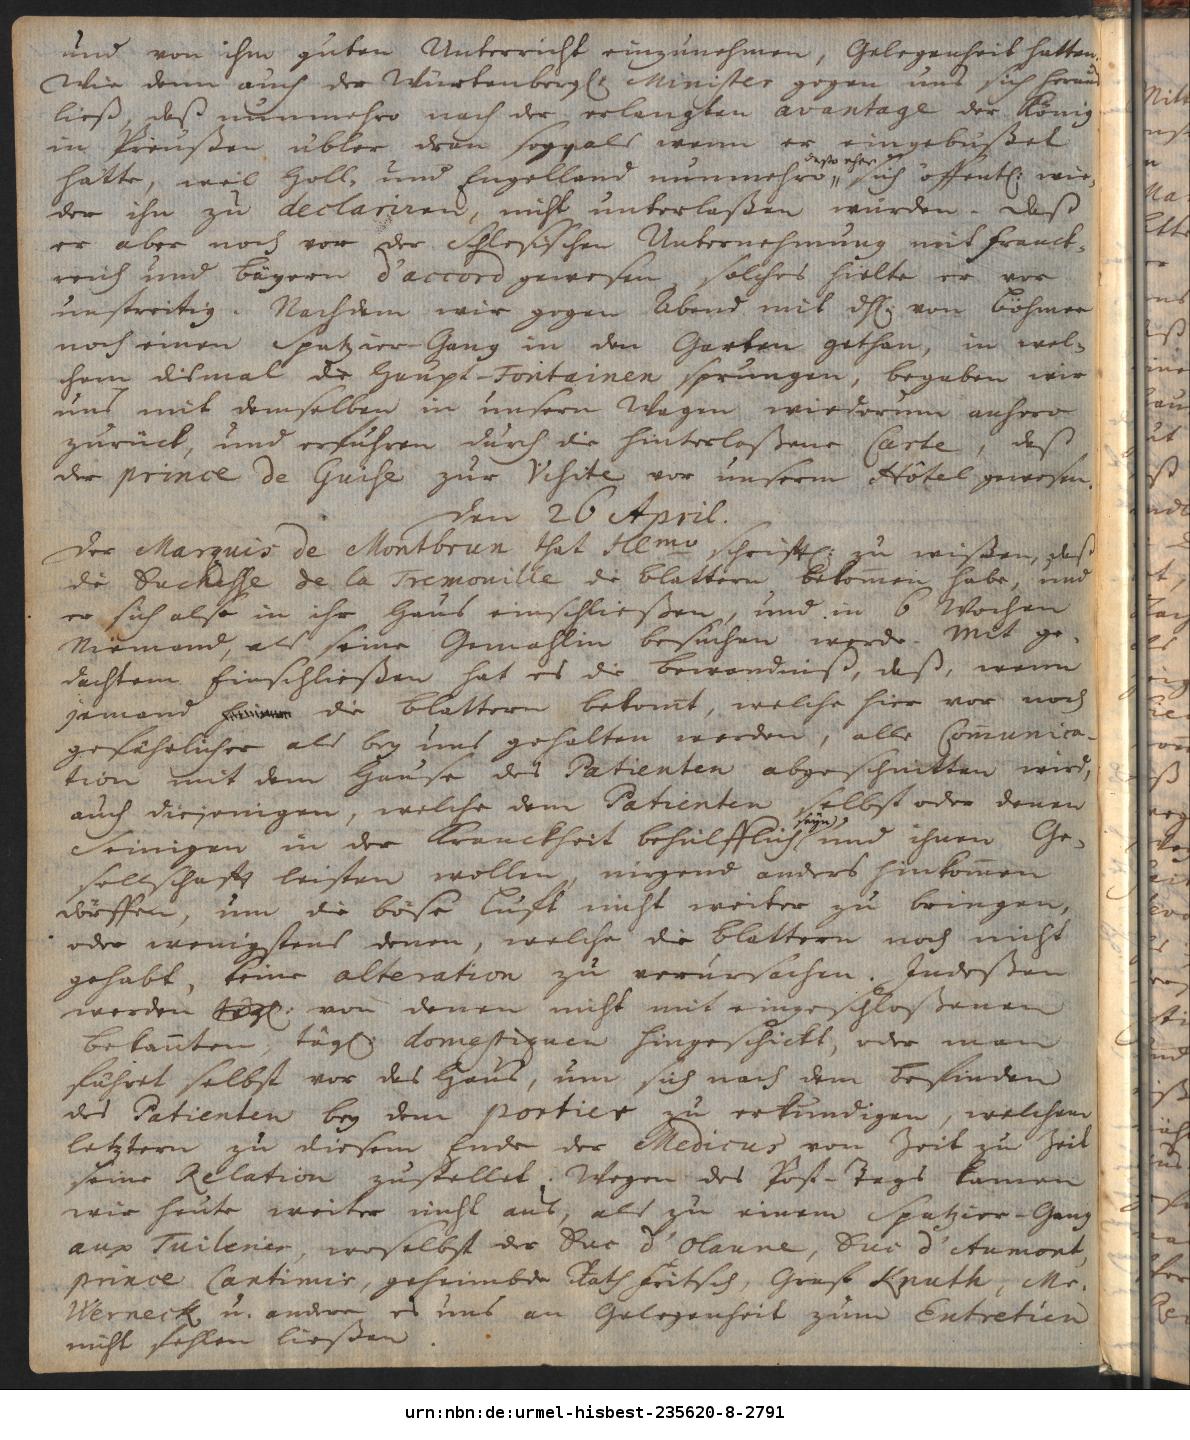 und von ihm guten Unterricht einzunehmen, Gelegenheit hatten.
Wie denn auch der Würtenbergl: Minister gegen uns sich heraus
ließ, daß nunmehro nach der erlangten avantage der König
in Preußen übler dran sey, als wenn er eingebüßet
hätte, weil Holl. und Engelland nunmehro desto eher sich öffentl: wie-
der ihn zu declariren, nicht unterlaßen würden. Daß
er aber noch vor der Schlesischen Unternehmung mit Franck-
reich und Bäyern d'accord gewesen, solches hielte er vor
unstreitig. Nachdem wir gegen Abend mit von Böhmer
noch einen Spatzier-Gang in den Garten gethan, in wel-
chem dismal die Haupt-Fontainen sprungen, begaben wir
uns mit demselben in unsern Wagen wiederum anhero
zurück, und erfuhren durch die hinterlaßene Carte, daß
der prince de Guise zur Visite vor unserm Hôtel gewesen.
den 26 April.
Der Marquis de Montbrun that Ill.mo schriftl: zu wißen, daß
die Duchesse de la Tremouille die Blattern bekom̄en habe, und
er sich also in ihr Haus einschließen, und in 6 Wochen
Niemand, als seine Gemahlin besuchen werde. Mit ge-
dachtem Einschließen hat es die Bewandniß, daß, wenn
jemand die Blattern bekom̄t, welche hier vor noch
gefährlicher als bey uns gehalten werden, alle Com̄unica-
tion mit dem Hause des Patienten abgeschnitten wird,
auch diejenigen, welche dem Patienten selbst oder denen
Seinigen in der Kranckheit behülfflich seyn, und ihnen Ge-
sellschafft leisten wollen, nirgend anders hinkom̄en
dörffen, um die böse Lufft nicht weiter zu bringen,
oder wenigstens denen, welche die Blattern noch nicht
gehabt, keine alteration zu verursachen. Indeßen
werden tägl: von denen nicht mit eingeschloßenen
Bekan̄ten, tägl: domestiquen hingeschickt, oder man
fähret selbst vor das Haus, um sich nach dem Befinden
des Patienten bey dem portier zu erkundigen, welchem
letztern zu diesem Ende der Medicus von Zeit zu Zeit
seine Relation zustellet. Wegen des Post-Tags kamen
wir heute weiter nicht aus, als zu einem Spatzier-Gang
aux Tuileries, woselbst der Duc d'Olonne, Duc d'Aumont,
prince Cantimir, geheimbde Rath Fritsch, Graf Knuth, Mr.
Werneck u. andere es uns an Gelegenheit zum Entretien
nicht fehlen ließen.
urn:nbn:de:urmel-hisbest-235620-8-2791